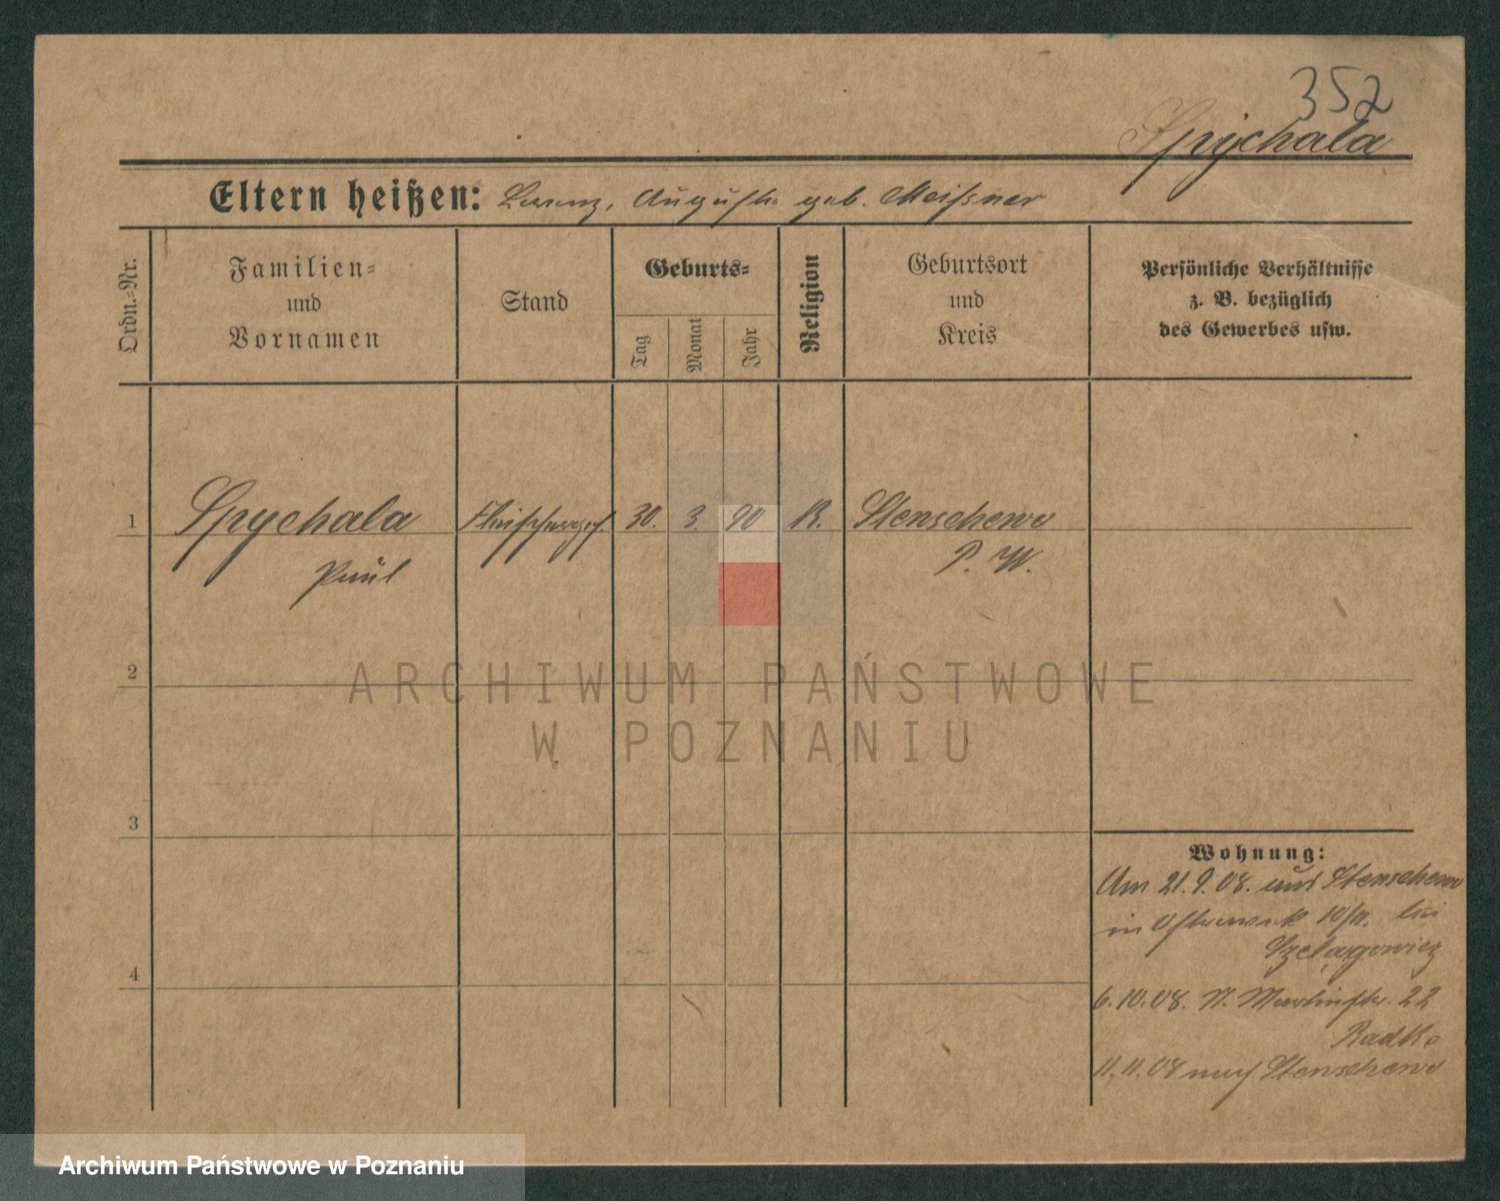 352
Spychala
Eltern heißen: Lorenz, Auguste geb. Meißner
Ordn.-Nr.
Familien-
und
Vornamen
Stand
Geburts-
Tag
Monat
Jahr
Religion
Geburtsort
und
Kreis
Persönliche Verhältnisse
z. B. bezüglich
des Gewerbes usw.
1 Spychala Fleischerges. 30. 3. 90 K. Stenschewo
Paul P. W.
2
ARCHIWUM PAŃSTWOWE
W POZNANIU
3
Wohnung:
Am 21. 9. 08. aus Stenschewo
in 10/11. bei
Szelągowicz
6. 10. 08. St. Martinstr. 22
Radtke
4
11. 11. 08 nach Stenschewo
Archiwum Państwowe w Poznaniu